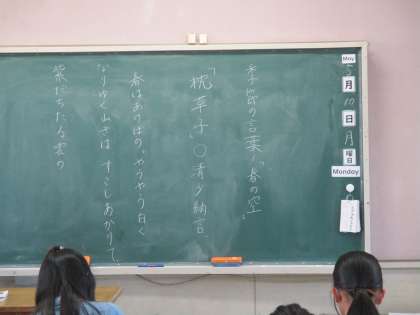 May
5月10日月曜日
Monday
季節の言葉1 春の空
「枕草子」○清少納言
春はあけぼの。やうやう白く
なりゆく山ぎは すこしあかりて、
紫だちたる雲の